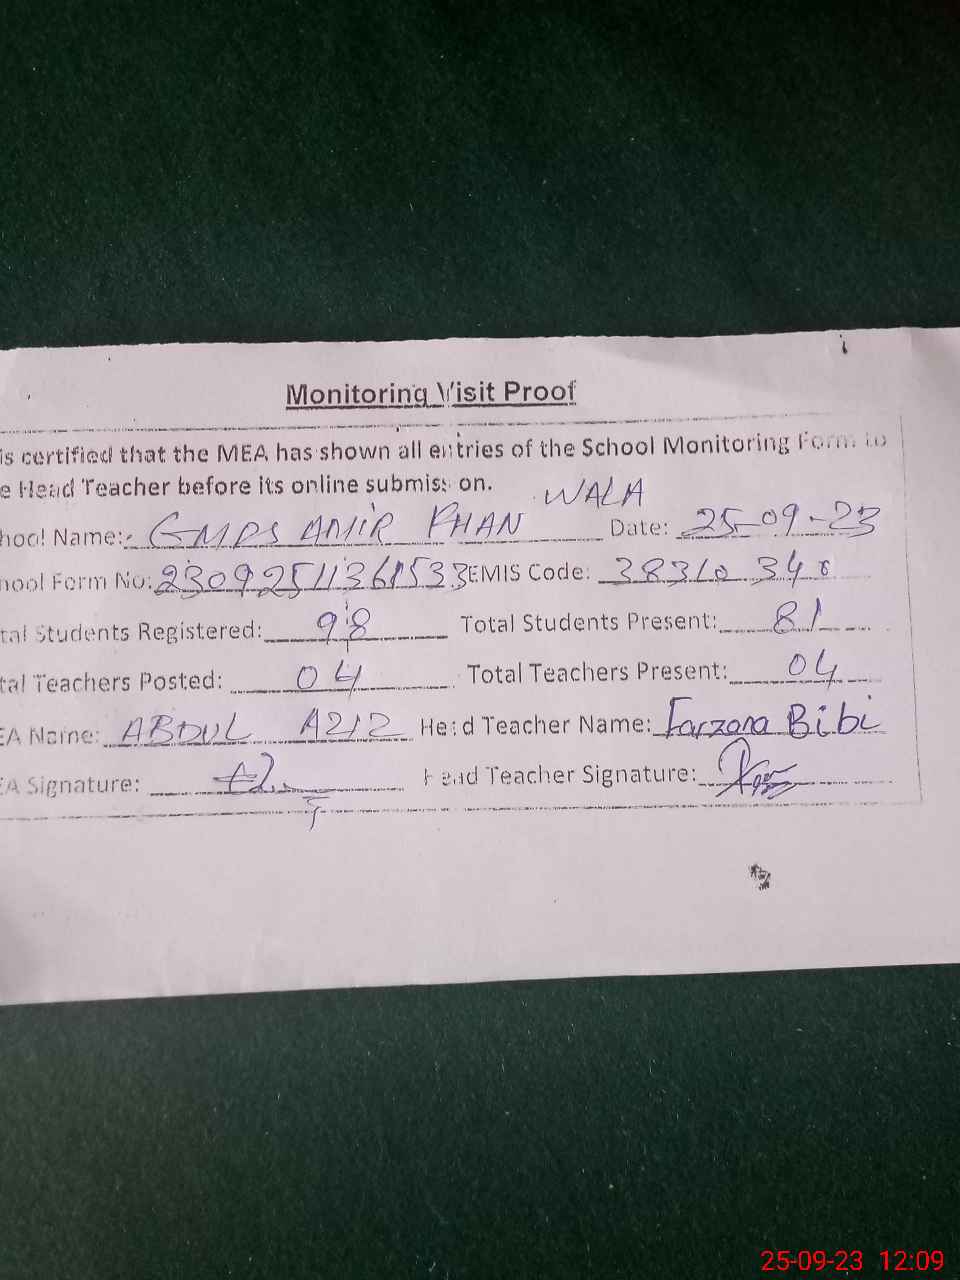 Monitoring Visit Proof
is certified that the MEA has shown all entries of the School Monitoring Form to
e Head Teacher before its online submission.
WALA
hool Name:- GMPS AMIR KHAN Date: 25-09-23
hool Form No: 23092511361533 EMIS Code: 38310340
tal Students Registered: 98 Total Students Present: 81
tal Teachers Posted: 04 Total Teachers Present: 04
EA Name: ABDUL AZIZ Head Teacher Name: Farzana Bibi
EA Signature: Head Teacher Signature:
25-09-23 12:09